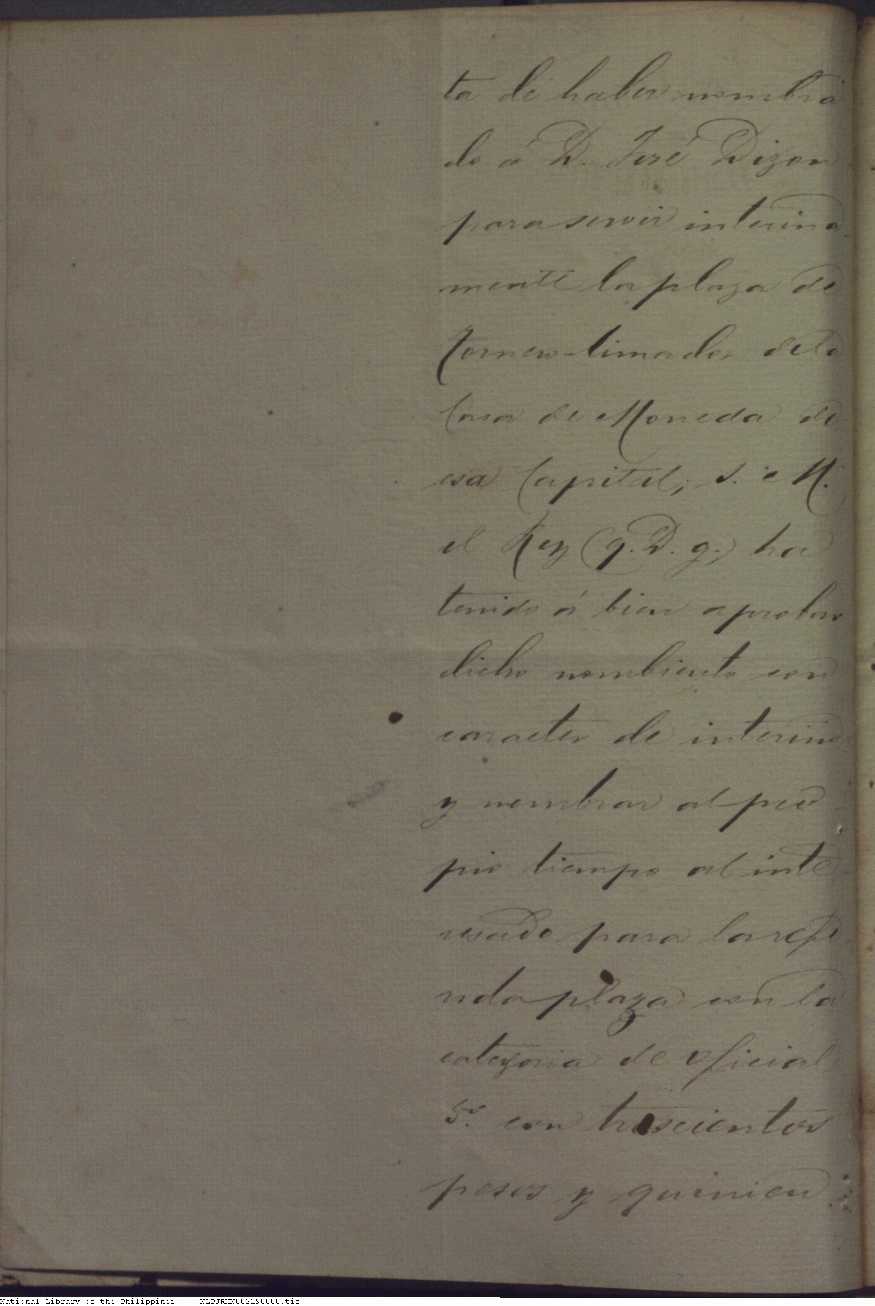 ta de haber nombra
do á D. José Dizon
para servir interina
mente la plaza de
tornero-limador dela
Casa de Moneda de
esa Capital; S. M.
el Rey (q. D. g.) ha
tenido á bien aprobar
dicho nombramiento con
caracter de interino
y nombrar al pro
pio tiempo al inte
resado para la refe
rida plaza con la
categoria de oficial
5º. con trescientos
pesos y quinien
National Library of the Philippines